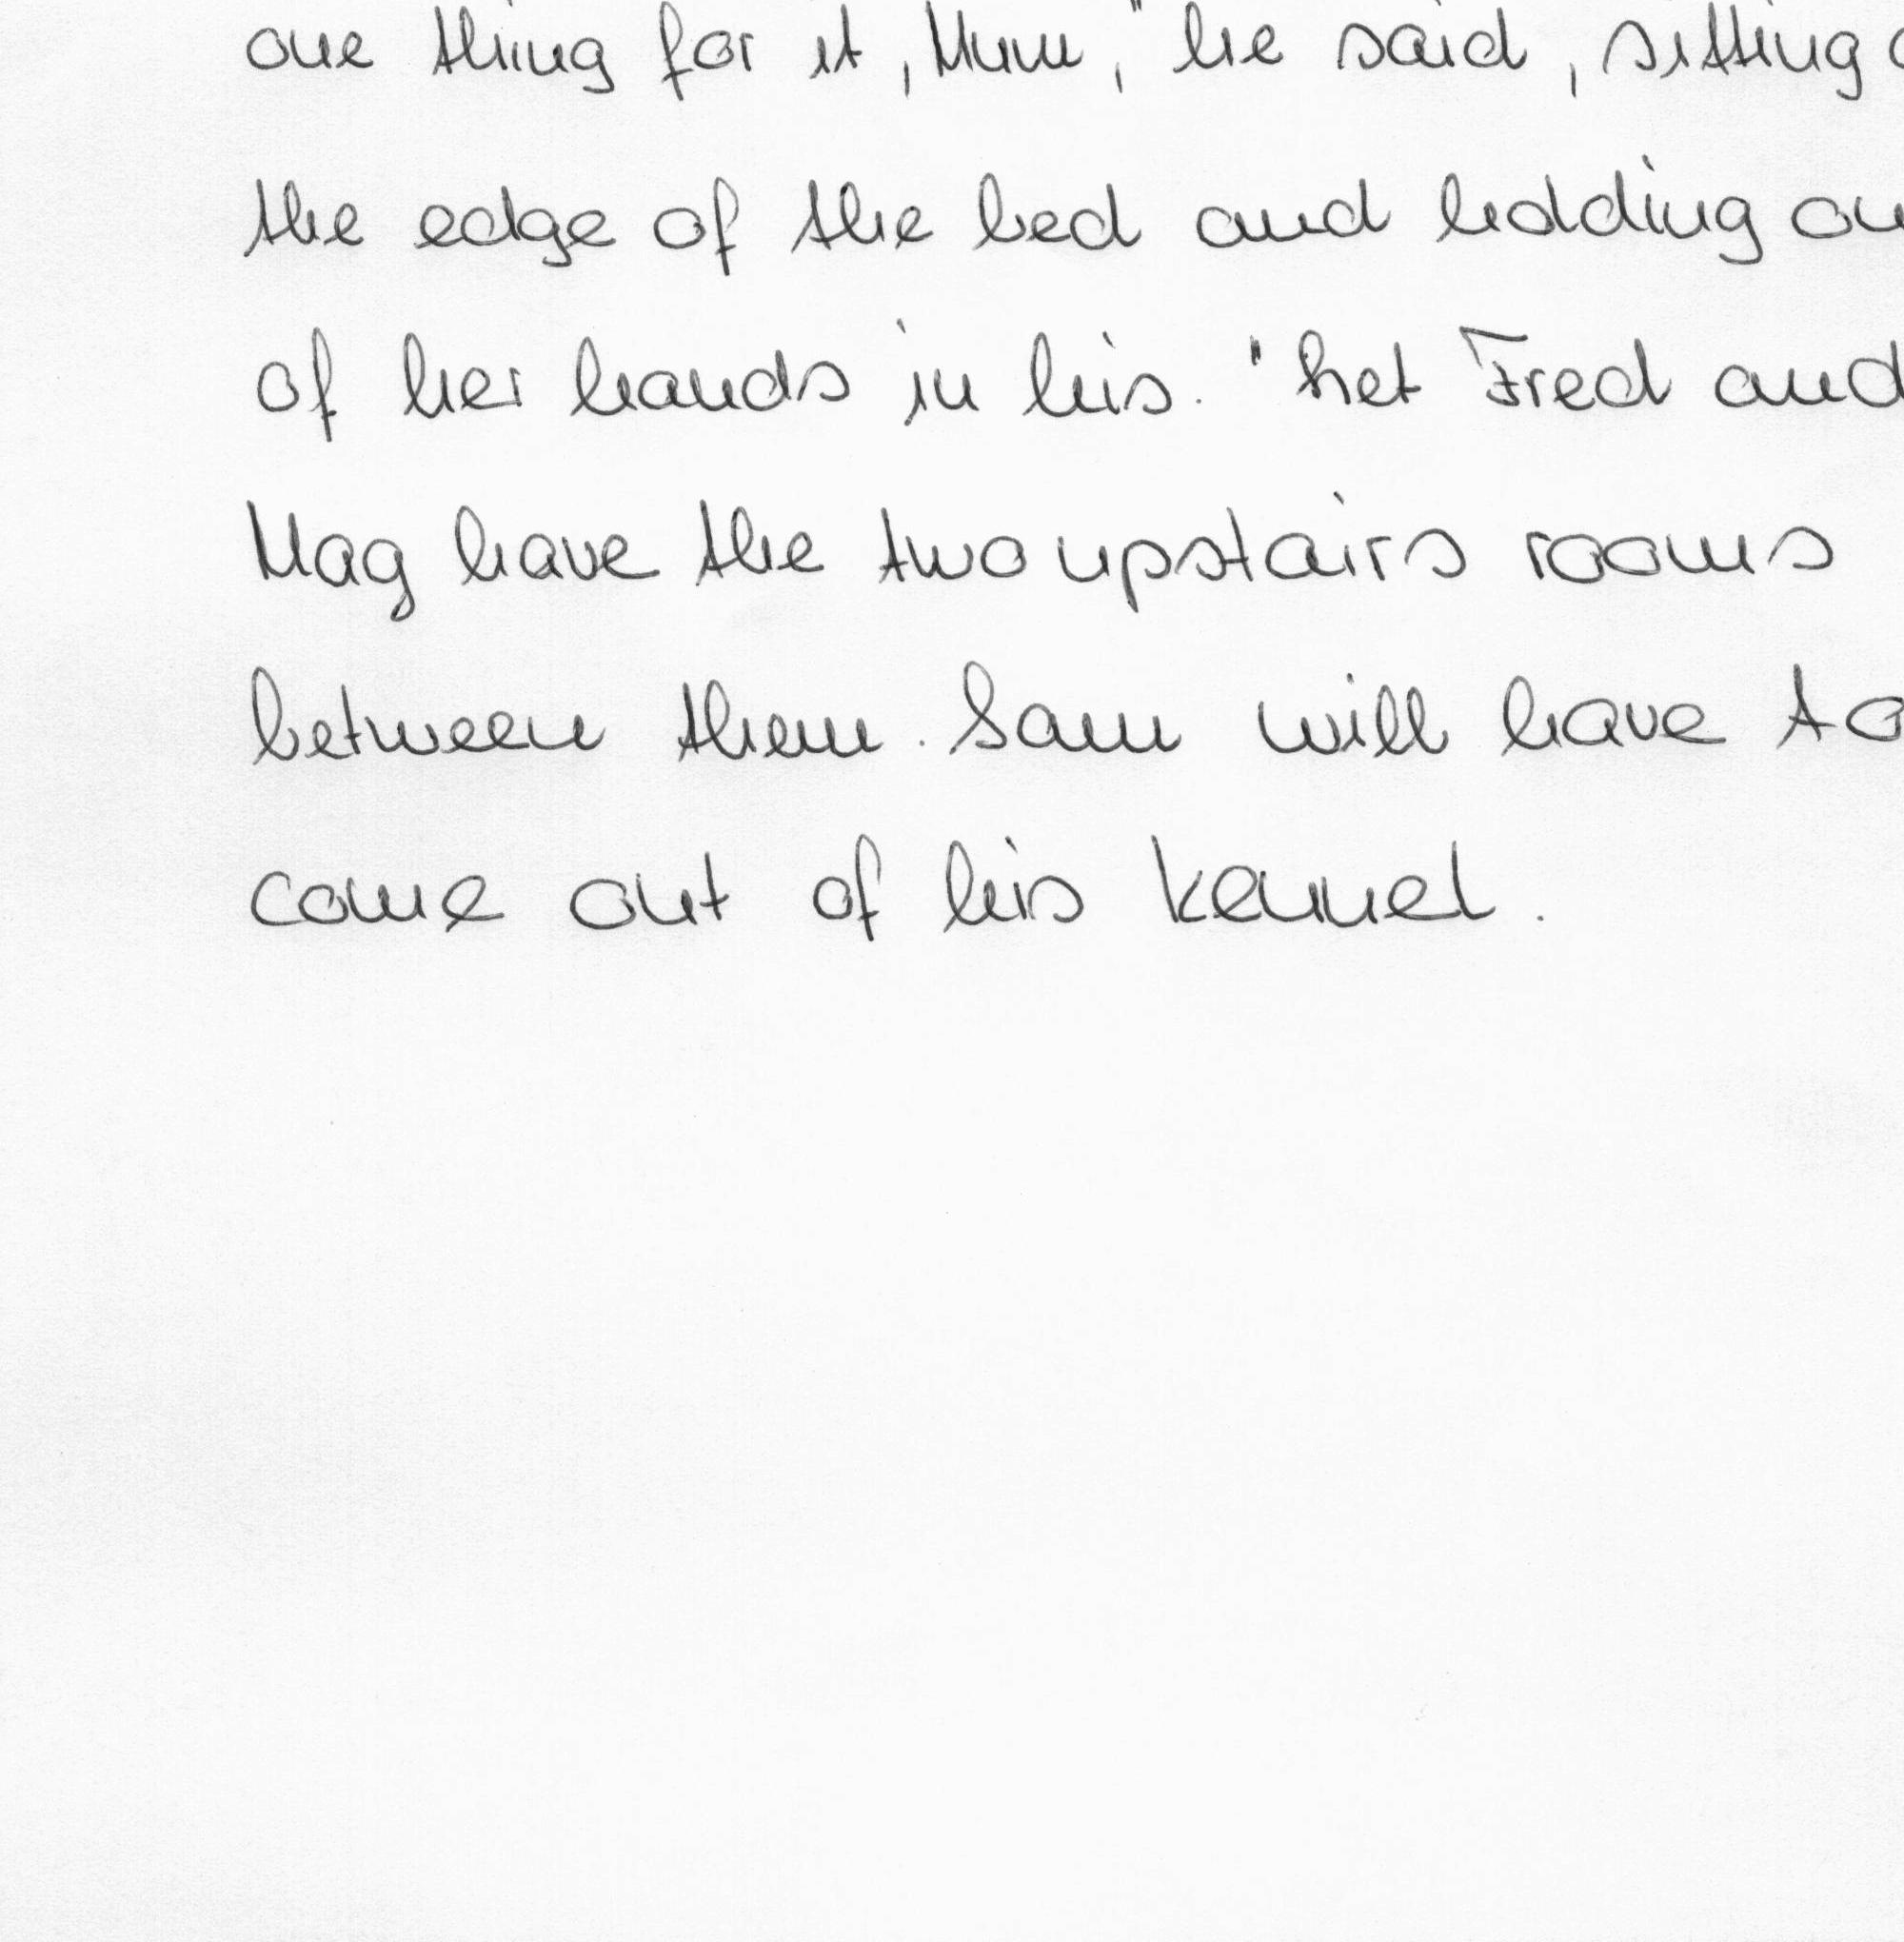 one thing for it, Mum," he said, sitting
the edge of the bed and holding
of her hands in his. "Let Fred and
Mag have the two upstairs rooms
between them. Sam will have to
come out of his kennel.